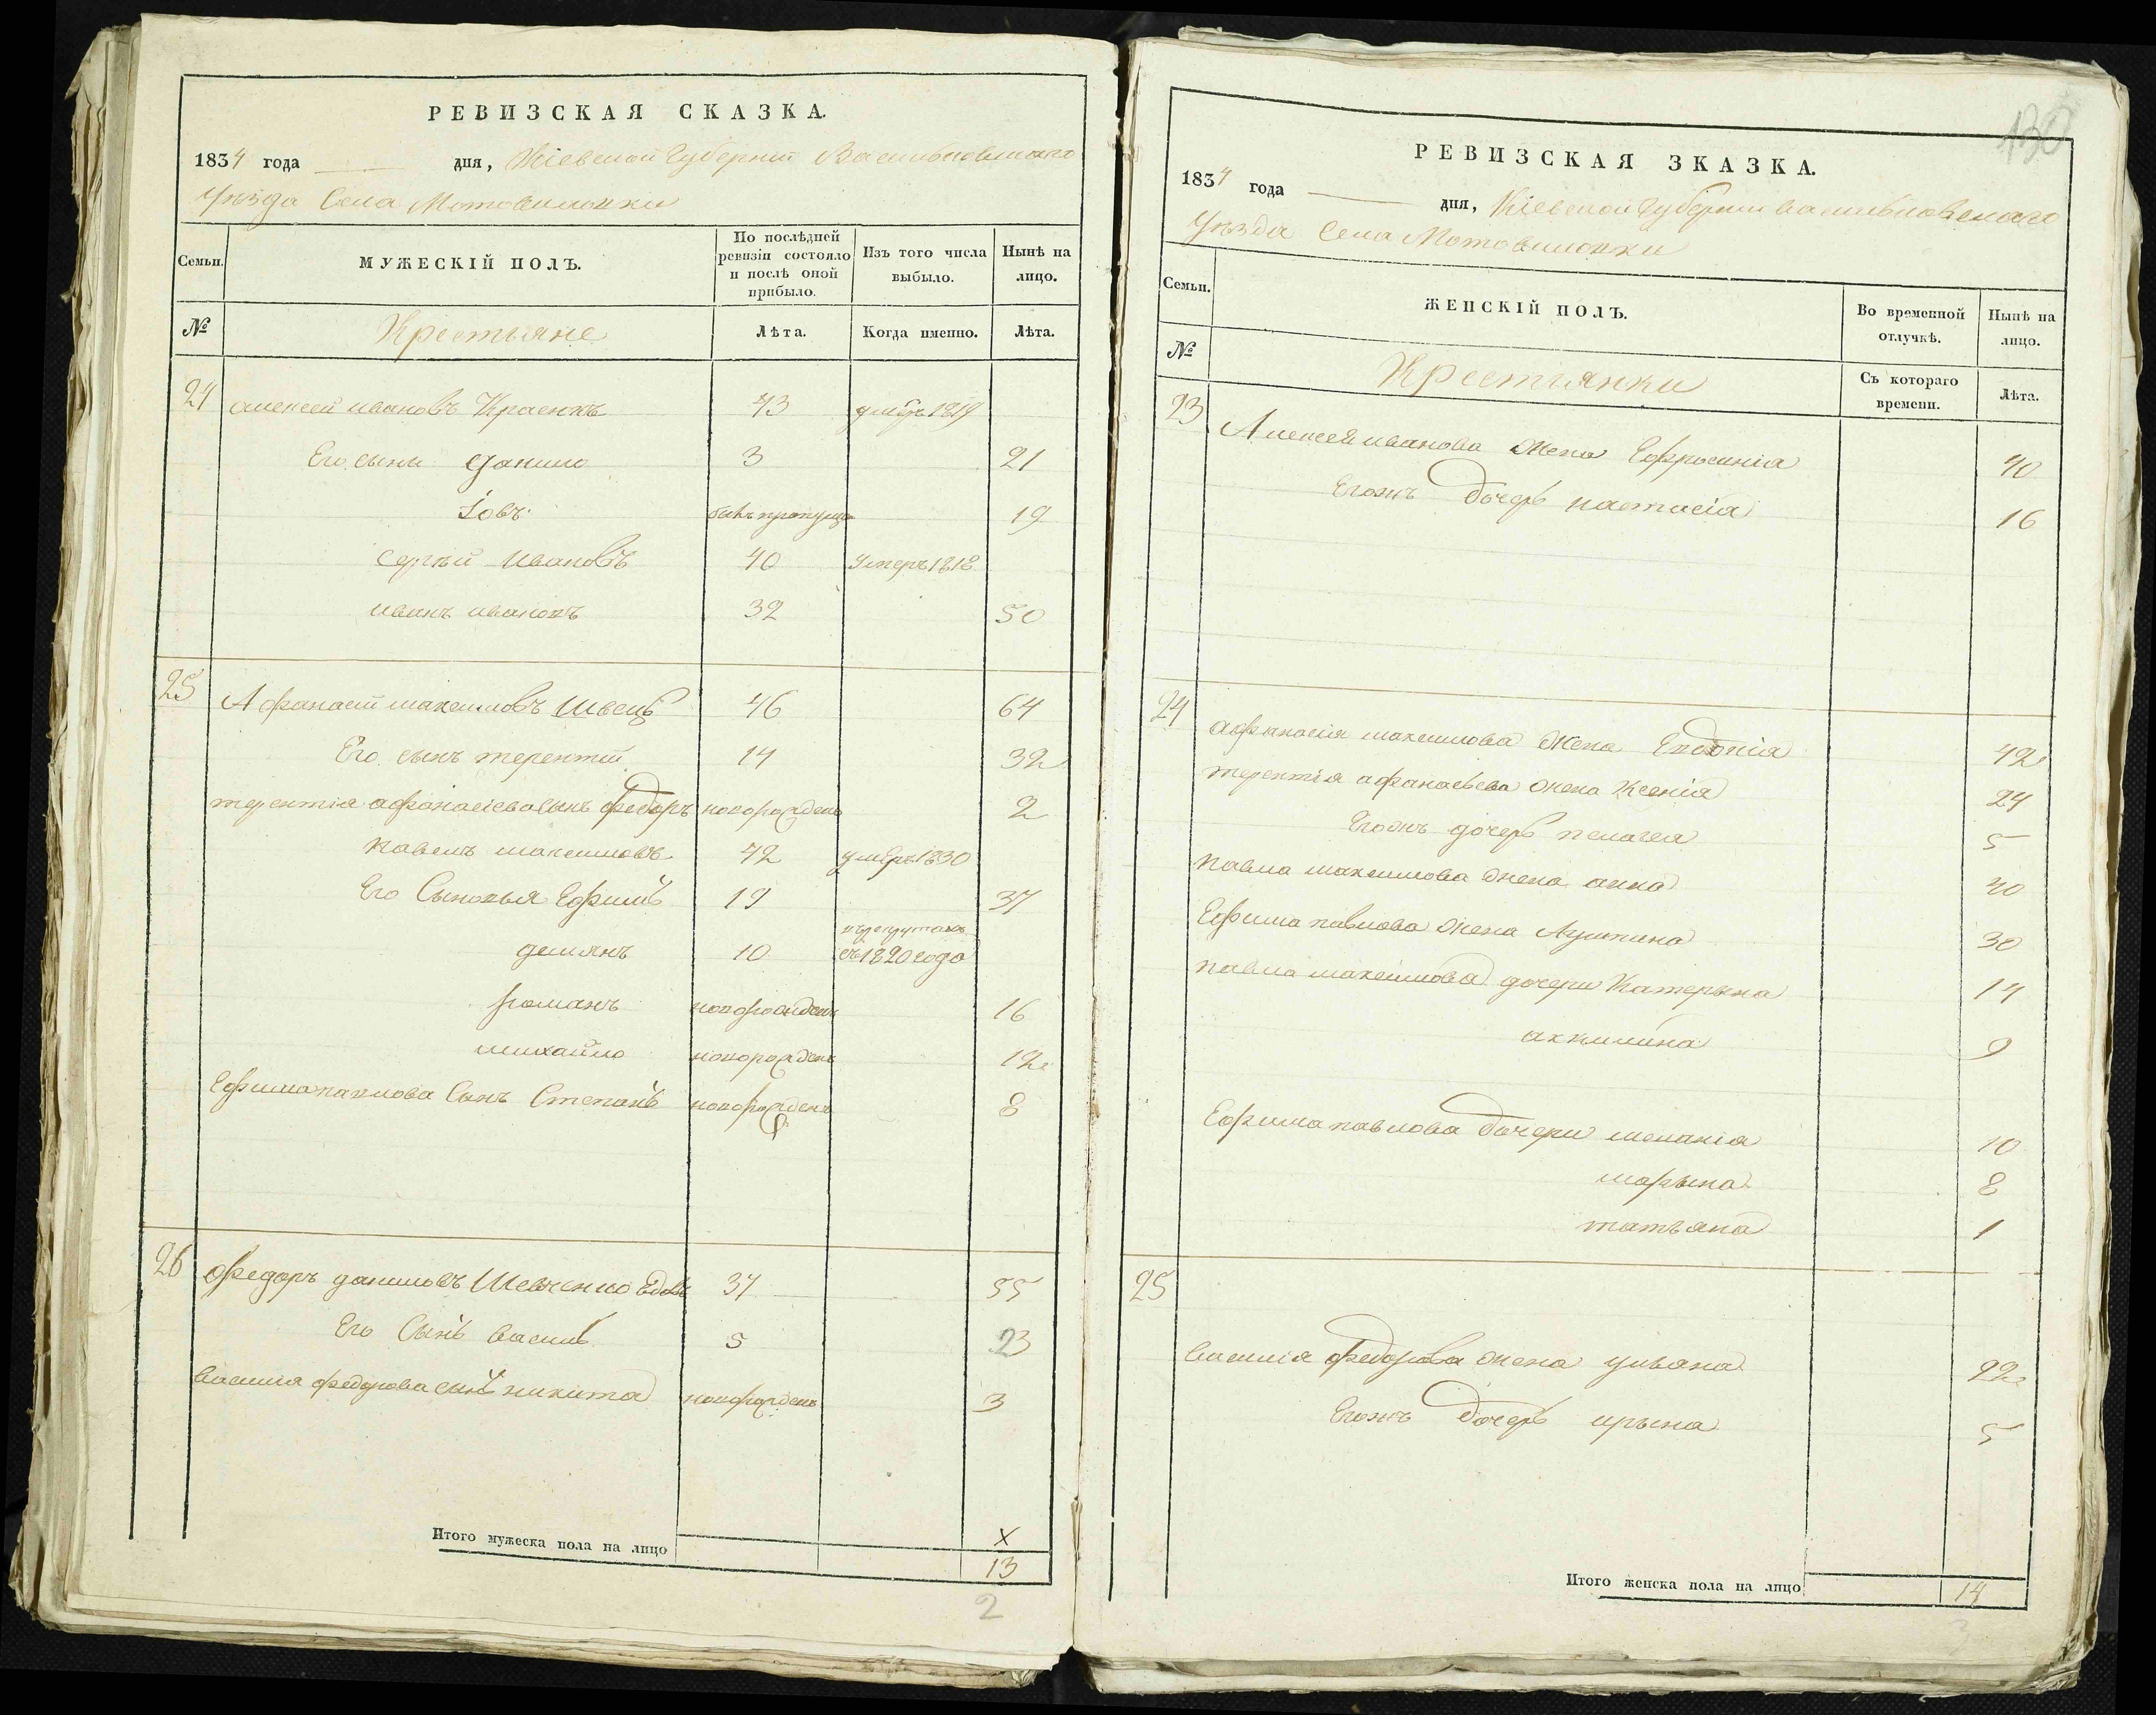 РЕВИЗСКАЯ СКАЗКА.
1834 года дня, Кіевской Губерніи Васильковскаго
Уѣзда Села Мотовиловки
Семьи. МУЖЕСКІЙ ПОЛЪ. По послѣдней ревизіи состояло и послѣ оной прибыло. Изъ того числа выбыло. Нынѣ на лицо.
№ Крестьяне Лѣта. Когда именно. Лѣта.
24 алексей ивановъ 43 умеръ 1819
Его сынъ данило 3 21
Іовъ 19
Сергѣй Ивановъ 40 умеръ 1818
иванъ ивановъ 32 50
25 Афанасій максимовъ Швецъ 46 64
Его сынъ терентій 14 32
терентія афанасіева сынъ федоръ новорожденъ 2
павелъ максимовъ 42 умеръ 1830
Его Сыновья Ефимъ 19 37
демянъ 10 1820 года
романъ новорожденъ 16
михайло новорожденъ 12
Ефима павлова Сынъ Степанъ новорожденъ 8
26 федоръ даниловъ Шевченко вдовъ 37 55
Его Сынъ василь 5 23
василія федорова сынъ никита новорожденъ 3
Итого мужеска пола на лицо
х
13
2
130
РЕВИЗСКАЯ ЗКАЗКА.
1834 года дня, Кіевской Губерніи васильковскаго
Уѣзда Села Мотовиловки
Семьи. ЖЕНСКІЙ ПОЛЪ. Во временной отлучкѣ. Нынѣ на лицо.
№ Крестьянки Съ котораго времени. Лѣта.
23 Алексея иванова жена Ефросинія 40
Егожъ дочерь настасія 16
24 афанасія максимова жена Евдокія 42
терентія афанасьева жена Ксенія 24
Егожъ дочерь пелагея 5
павла максимова жена анна 40
Ефима павлова жена 30
павла максимова дочери Катерына 14
акилина 9
Ефима павлова дочери меланія 10
марына 8
татьяна 1
25
василія федорова жена ульяна 22
Егожъ дочерь ирына 5
Итого женска пола на лицо 14